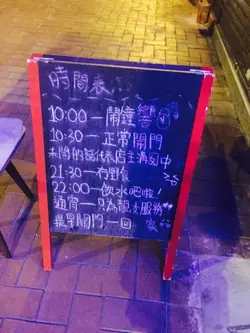 時間表...
10:00 — 鬧鐘響
10:30 — 正常開門
未開的話代表店主清醒中
21:30 — 冇野食
22:00 — 飲水吧啦!
通宵 — 只為靚女服務
提早關門 —